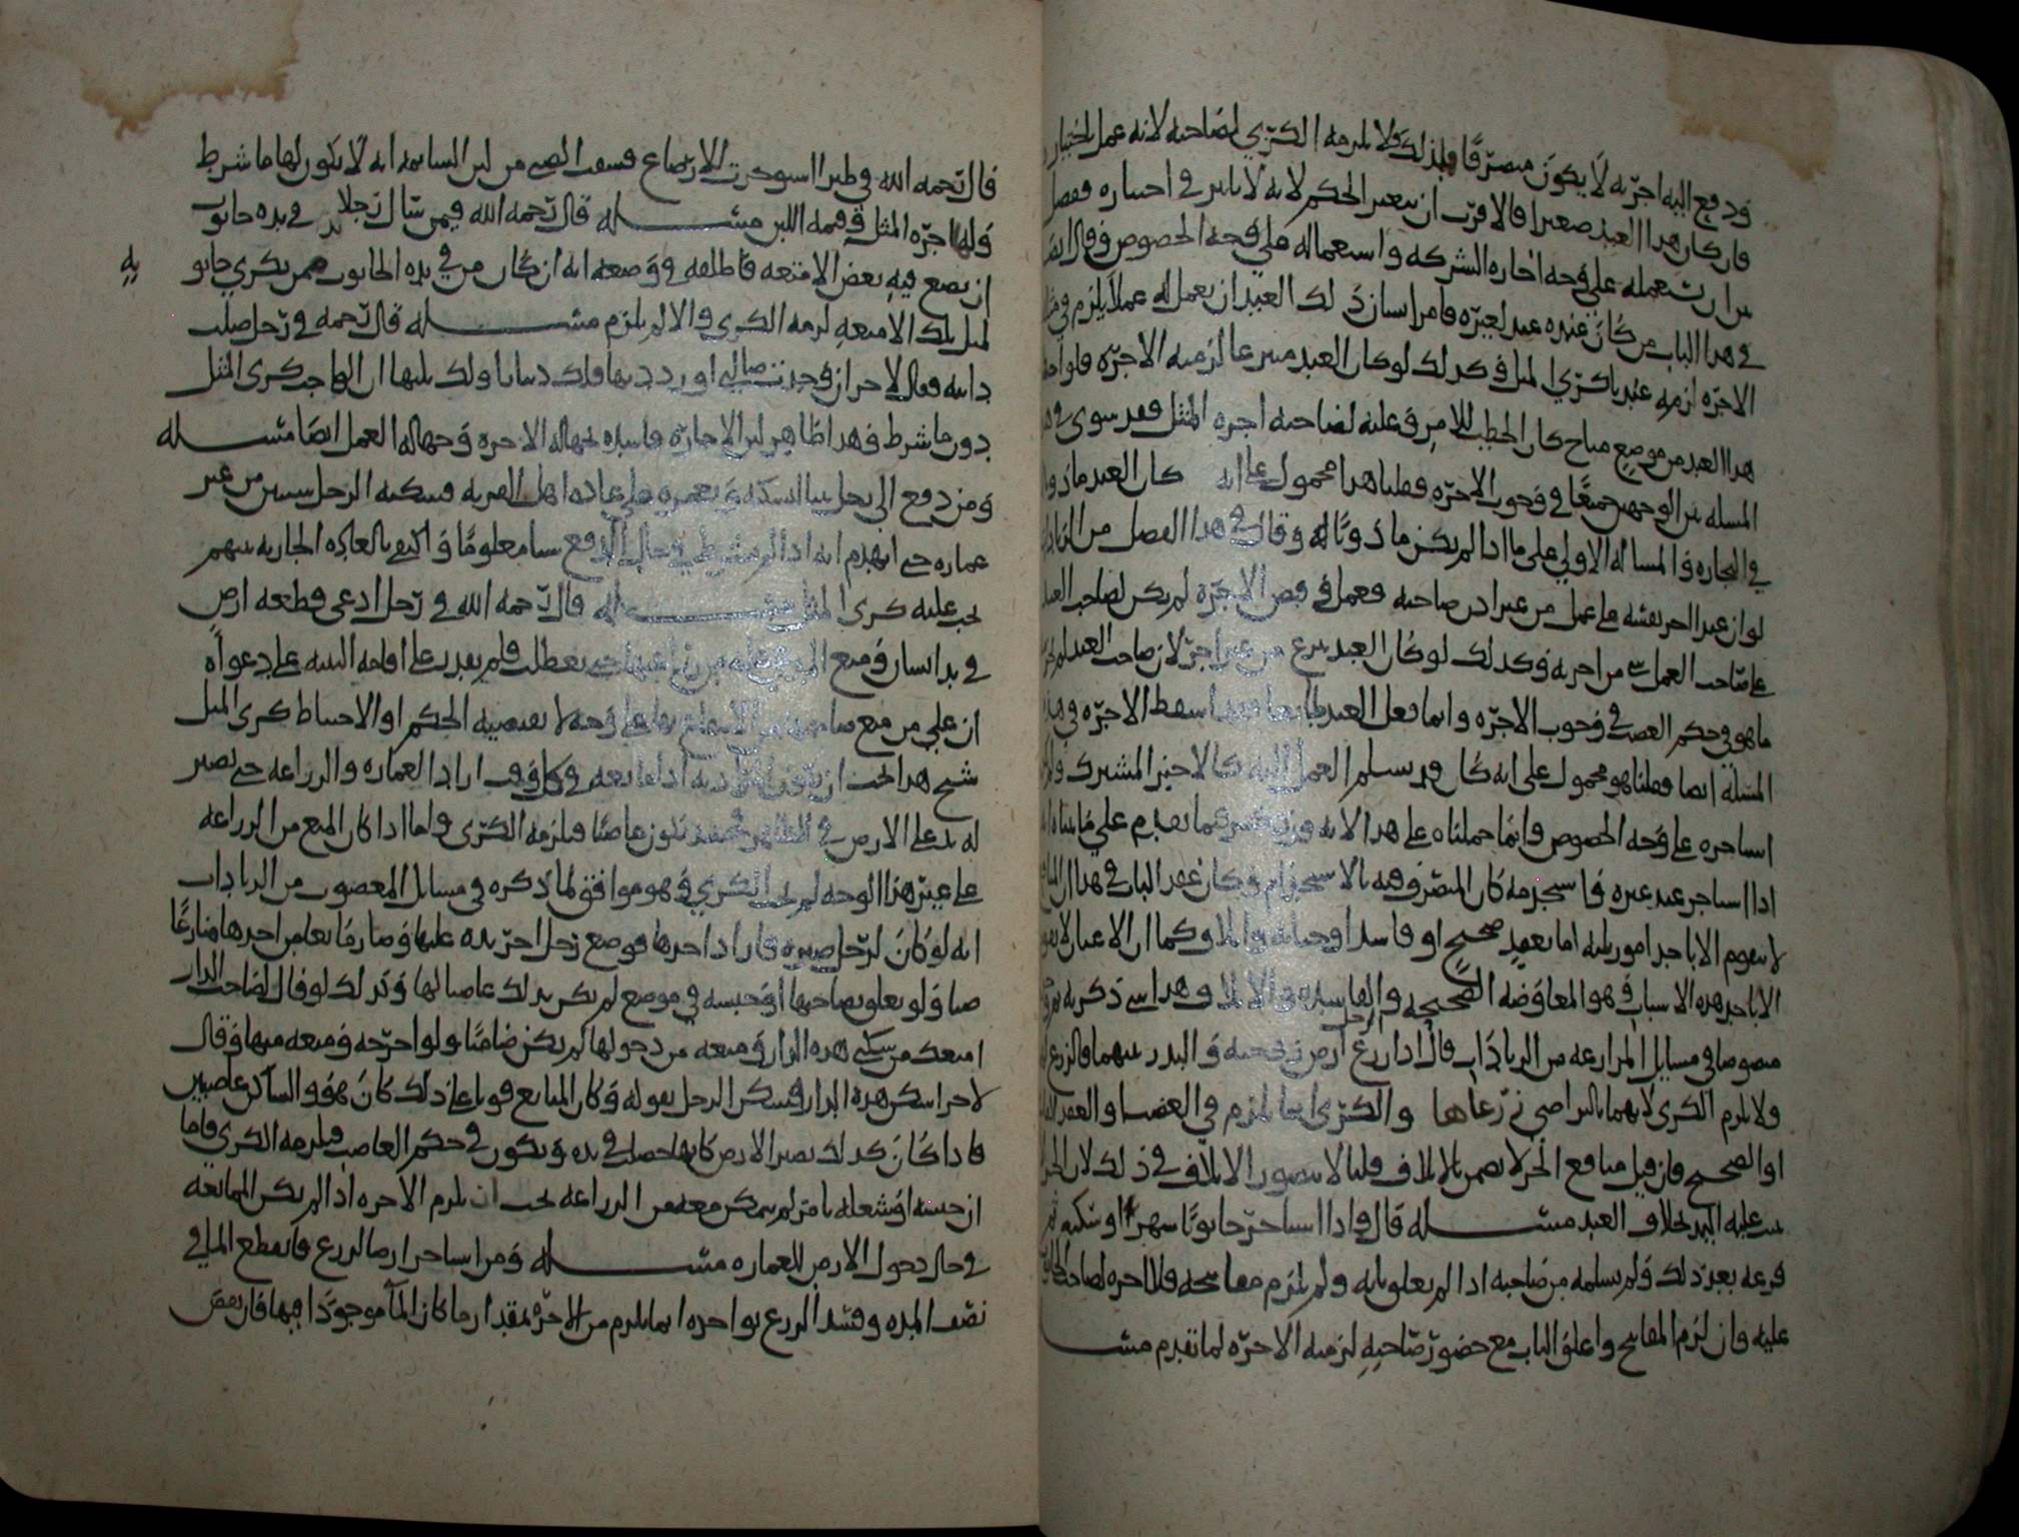 ودفع اليه اجرته لا يكون متصرفا فلذلك فلا يلزمه الكرى لصاحبه لانه عمل باختيار
فان كان هذا العبد صغيرا فالاقرب ان يتغير الحكم لانه لا تاثير في اختياره وفصل
بين ان يستعمله على وجه اجاره الشركه واستعماله على وجه الخصوص وقال ايضا
في هذا الباب من كان عنده عبد لغيره فامر انسان ذلك العبد ان يعمل له عملا يلزم في مثله
الاجره لزمه عندنا كرى المثل وكذلك لو كان العبد متبرعا لزمته الاجره فلو احتطب
هذا العبد من موضع مباح كان الحطب للامر وعليه لصاحبه اجره المثل فقد سوى في هذه
المسله بين الوجهين جميعا في وجوب الاجره وقلنا هذا محمول على انه كان العبد ماذونا
في التجاره والمساله الاولى على ما اذا لم يكن ماذونا له وقال في هذا الفصل من الزيادات
لو ان عبدا اجر نفسه على عمل من غير اذن صاحبه فعمل وقبض الاجره لم يكن لصاحب العبد
على صاحب العمل شي من اجرته وكذلك لو كان العبد تبرع من غير اجر لان صاحب العبد
ما هو في حكم الغصب في وجوب الاجره وانما فعل العبد فقد اسقط الاجره في هذه
المسله ايضا وقلنا هو محمول على انه كان قد يسلم العمل اليه كالاجير المشترك
استاجره على وجه الخصوص وانما حملناه على هذا لانه فيما تقدم على ما بيناه
اذا استاجر عبد غيره فاستخدمه كان المتصرف فيه بالاستخدام وكان عقد الباب في هذا ان المنافع
لا تتقوم الا باحد امور ثلثه اما بعقد صحيح او فاسد او جنايه واتلاف وكما ان الاعيان لا تقوم
الا باحد هذه الاسباب وهو المعاوضه الصحيحه والفاسده والاتلاف وهذا شي ذكر به
منصوصا في مسايل المزارعه من الزيادات قال اذا زرع ارض زوجته والبذر بينهما فالزرع
ولا يلزم الكرى لانهما بالتراضي زرعاها والكرى انما يلزم في الغصب او العقد
او الصحيح فان قيل منافع الحر لا تضمن بالاتلاف قلنا لا يتصور الاتلاف في ذلك لان الحر
تثبت عليه اليد بخلاف العبد مسله قال واذا استاجر حانوتا شهرا او سكنه
فرغه بعد ذلك ولم يسلمه من صاحبه اذا لم يغلق بابه ولم يلزم مفاتحه فلا اجره لصاحب
عليه وان لزم المفاتيح واغلق الباب مع حضور صاحبه لزمته الاجره لما تقدم مسله
قال رحمه الله في ظير استوجرت للارضاع فسقت الصبي من لبن السايمه انه لا يكون لها ما شرط
ولها اجره المثل وقيمه اللبن مسله قال رحمه الله فيمن سال رجلا في يده حانوت
ان يضع فيه بعض الامتعه فاطلقه ووضعه انه ان كان من في يده الحانوت ممن يكري حانوته
لمثل تلك الامتعه لزمه الكرى والا لم يلزم مسله قال رحمه في رجل ضلت
دابته فقال لاخر ان وجدت ضالتي او رددتها فلك دينارا ولك ثلثها ان الواجب كرى المثل
دون ما شرط وهذا ظاهر لان الاجاره فاسده لجهاله الاجره وجهاله العمل ايضا مسله
ومن دفع الى رجل بيتا ليسكنه ويعمره على عاده اهل القريه فسكنه الرجل سنين من غير
عماره حتى انهدم انه اذا لم يشترط في حال الدفع شيا معلوما واكتفى بالعاده الجاريه بينهم
يجب عليه كرى المثل مسله قال رحمه الله في رجل ادعى قطعه ارض
في يد انسان ومنع من زراعتها حتى تعطلت فلم يقدر على اقامه البينه على دعواه
ان على من منع صاحبها من الانتفاع بها على وجه لا يقتضيه الحكم او الاحتياط كرى المثل
شح هذا يجب ان يكون اذا مانعه في كل وقت اراد العماره والزراعه حتى تصير
له يد على الارض في الظاهر يكون غاصبا فيلزمه الكرى واما اذا كان المنع من الزراعه
على غير هذا الوجه لم يجب الكرى وهو موافق لما ذكره في مسايل الغصوب من الزيادات
انه لو كان لرجل فاراد احدها فوضع رجل اخر يده عليها وصار مانعا من احدها منازعا
ضا ولو تعلق بصاحبها او حبسه في موضع لم يكن بذلك غاصبا لها وكذلك لو قال لصاحب الدار
امنعك من سكنى هذه الدار ومنعه من دخولها لم يكن ضامنا ولو اخرجه ومنعه منها وقال
لاخر اسكن هذه الدار فسكن الرجل بقوله وكان المانع قويا على ذلك كان هو والساكن غاصبين
فاذا كان كذلك تصير الارض كانها حصلت في يده ويكون في حكم الغاصب فيلزمه الكرى فاما
ان حبسه او شغله بامر لم يتمكن معه من الزراعه يجب ان يلزم الاجره اذا لم يكن الممانعه
في حال دخول الارض للعماره مسله ومن استاجر ارضا للزرع فانقطع الما في
نصف المده وفسد الزرع بواحده انما يلزم من الاجره بمقدار ما كان الماء موجودا فيها فان نقص